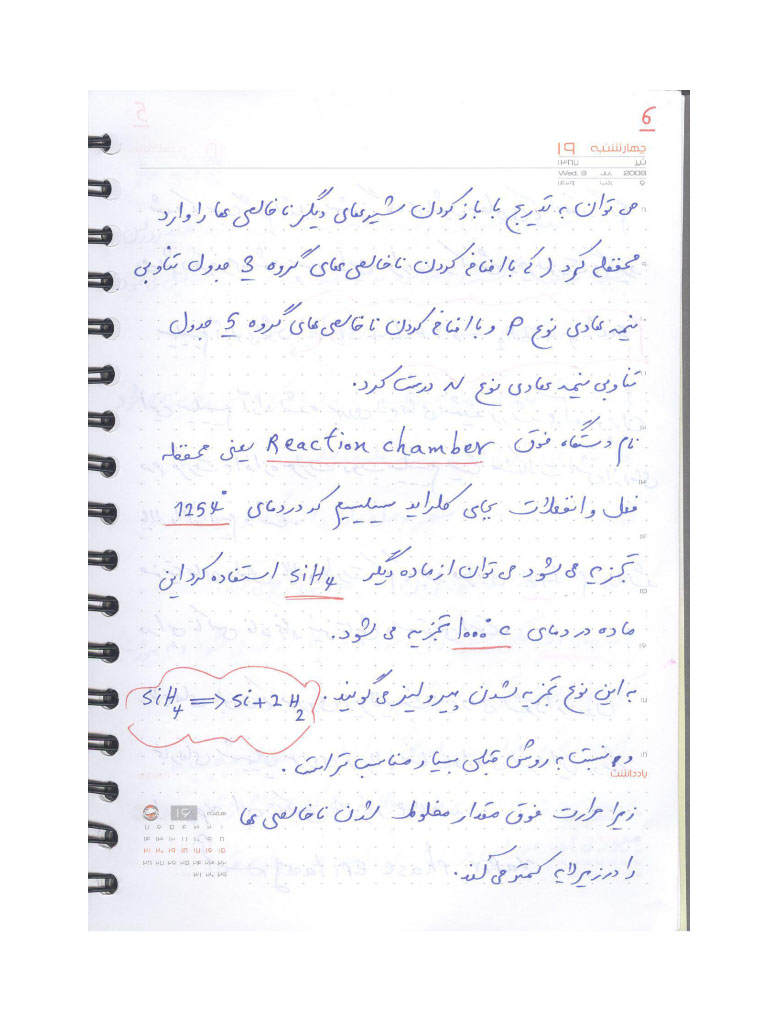 6
چهارشنبه ۱۹
تیر ۱۳۸۷
Wed. 9 Jul 2008
می توان به تدریج با باز کردن شیرهای دیگر ناخالصی ها را وارد
محفظه کرد ( که با اضافه کردن ناخالصی های گروه 3 جدول تناوبی
نیمه هادی نوع P و با اضافه کردن ناخالصی های گروه 5 جدول
تناوبی نیمه هادی نوع درست کرد.
نام دستگاه فوق Reaction chamber یعنی محفظه
فعل و انفعلات بجای کلراید سیلیسیم که در دمای 1254°
تجزیه می شود می توان از ماده دیگر SiH4 استفاده کرد این
ماده در دمای ۱۰۰۰° c تجزیه می شود.
به این نوع تجزیه شدن پیرولیز می گویند. SiH4 => Si + 2H2
و نسبت به روش قبلی بسیار مناسب تر است.
یادداشت
زیرا حرارت فوق مقدار مخلوط شدن ناخالصی ها
هفته ۱۶
را در زیر لایه کمتر می کند.